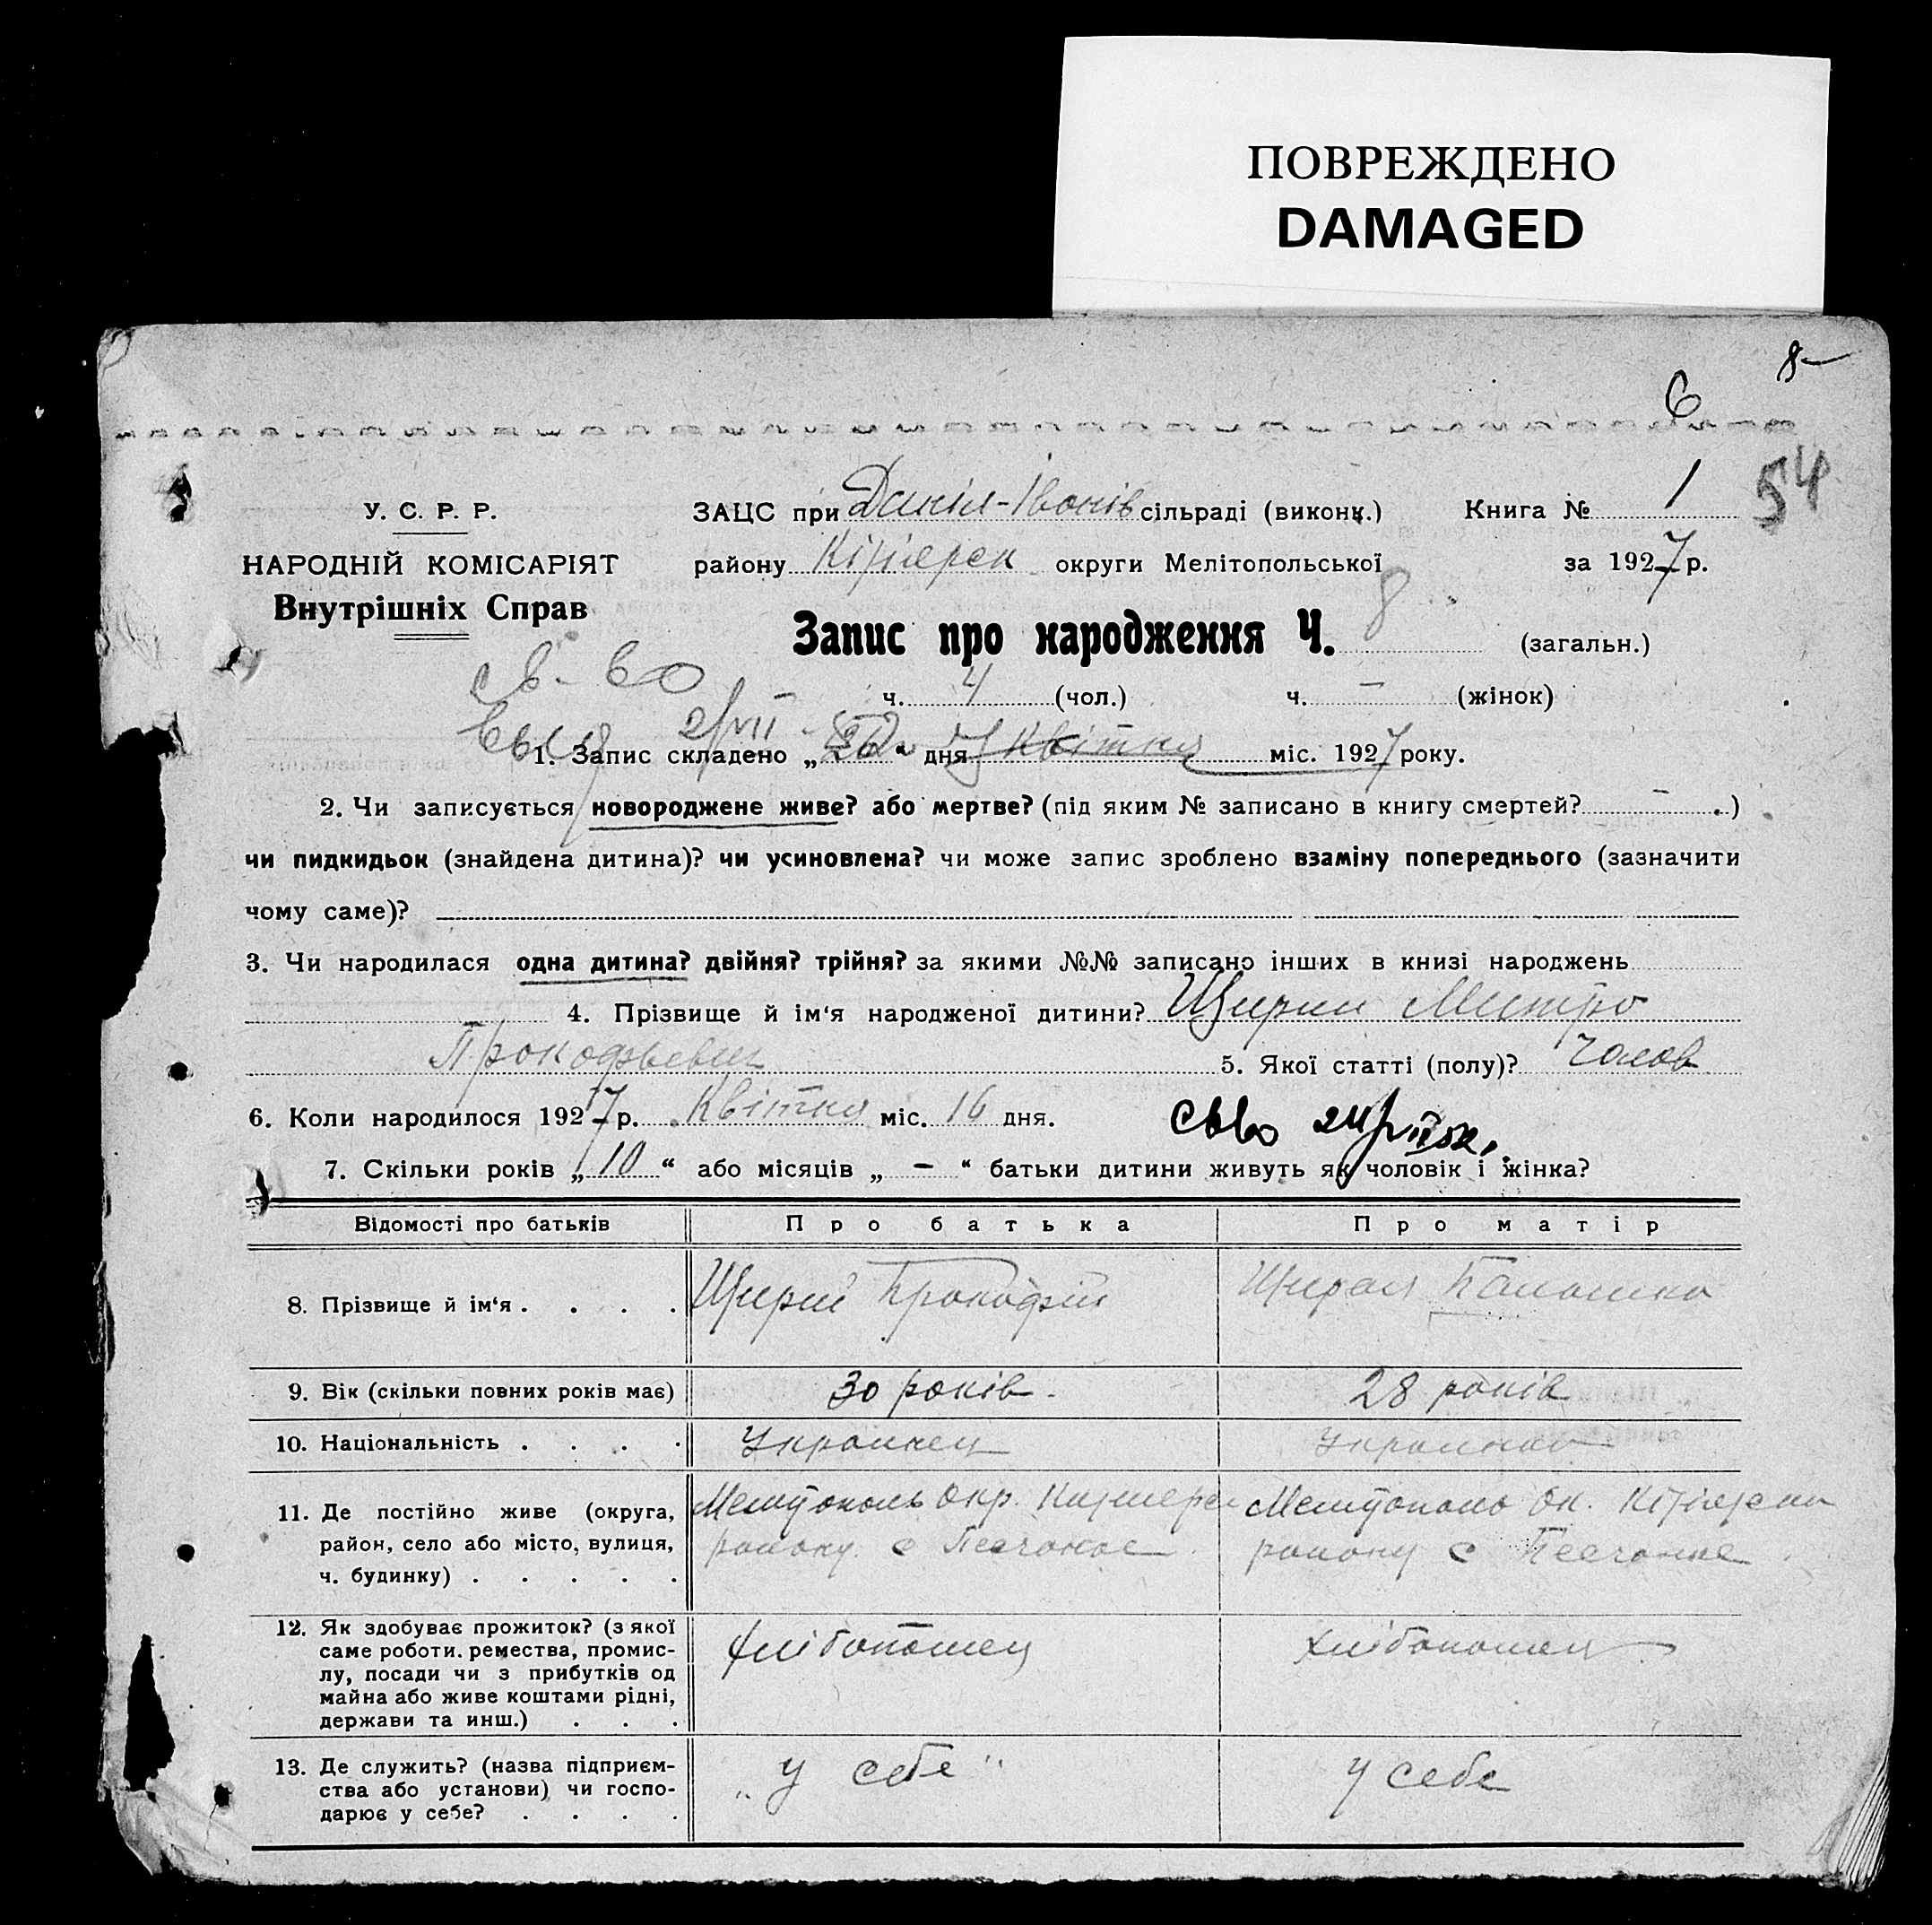 ПОВРЕЖДЕНО
DAMAGED
8
6
54
У. С. Р. Р.
НАРОДНІЙ КОМІСАРІЯТ
Внутрішніх Справ
ЗАЦС при Даніл-Іванів сільраді (виконк.)
Книга № 1
району Кізіярськ округи Мелітопольської
за 1927 р.
Запис про народження Ч. 8 (загальн.)
ч. 4 (чол.) ч. – (жінок)
св-во
1. Запис складено „20“ дня Квітня міс. 1927 року.
2. Чи записується новороджене живе? або мертве? (під яким № записано в книгу смертей? – .)
чи пидкидьок (знайдена дитина)? чи усиновлена? чи може запис зроблено взаміну попереднього (зазначити
чому саме)?
3. Чи народилася одна дитина? двійня? трійня? за якими №№ записано інших в книзі народжень
4. Прізвище й ім‘я народженої дитини? Щирий Митро
Прокофьевич 5. Якої статті (полу)? Чолов
6. Коли народилося 1927 р. Квітня міс. 16 дня.
7. Скільки років „10“ або місяців „–“ батьки дитини живуть як чоловік і жінка?
Відомості про батьків Про батька Про матір
8. Прізвище й ім‘я . . . . Щирий Прокофій Щирая
9. Вік (скільки повних років має) 30 років. 28 років
10. Національність . . . . Украинец Украинка
11. Де постійно живе (округа, Мелітополь Окр. Мелітополь Ок.
район, село або місто, вулиця, району с Песчаное району с Песчаное
ч. будинку) . . . . .
12. Як здобуває прожиток? (з якої
саме роботи. ремества, промис- хлібопашец хлібопашец
лу, посади чи з прибутків од
майна або живе коштами рідні,
держави та инш.) . . .
13. Де служить? (назва підприєм- „у себе“ у себе
ства або установи) чи госпо-
дарює у себе? . . . .